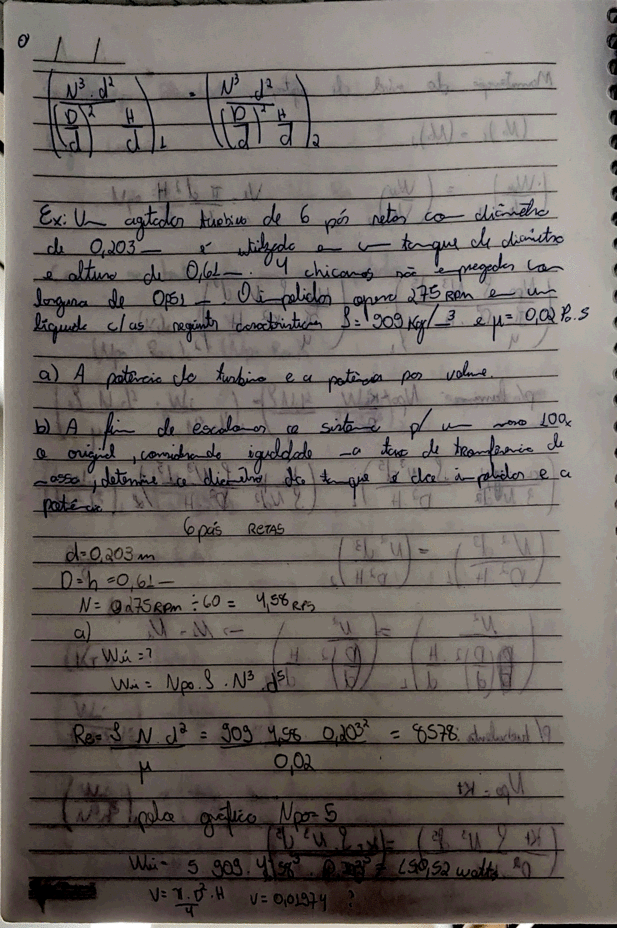 / /
(N³ . d² / (D/d)² H/d)₁ = (N³ d² / (D/d)² H/d)₂
Ex: Um agitador turbina de 6 pás retas com diâmetro
de 0,203 m é utilizado em um tanque de diâmetro
e altura de 0,61 m. 4 chicanas são empregadas com
largura de 0,051 m. O impelidor opera 275 RPM em um
líquido c/ as seguintes características ρ = 909 Kg/m³ e μ = 0,02 Pa.S
a) A potência da turbina e a potência por volume.
b) A fim de escalonar o sistema p/ um novo 100x
o original, considerando igualdade na taxa de transferência de
massa, determine o diâmetro do tanque e dos impelidos e a
potência
6 pás RETAS
d = 0,203 m
D = h = 0,61 m
N = 275 RPM ÷ 60 = 4,58 RPS
a)
Wu = ?
Wu = Npo . ρ . N³ . d⁵
Re = ρ N . d² / μ = 909 4,58 0,203² / 0,02 = 8578
pelo gráfico Npo = 5
Wu = 5 909 . 4,58³ . 0,203⁵ = 150,52 watts
V = π . D² . H / 4 V = 0,01974 ?